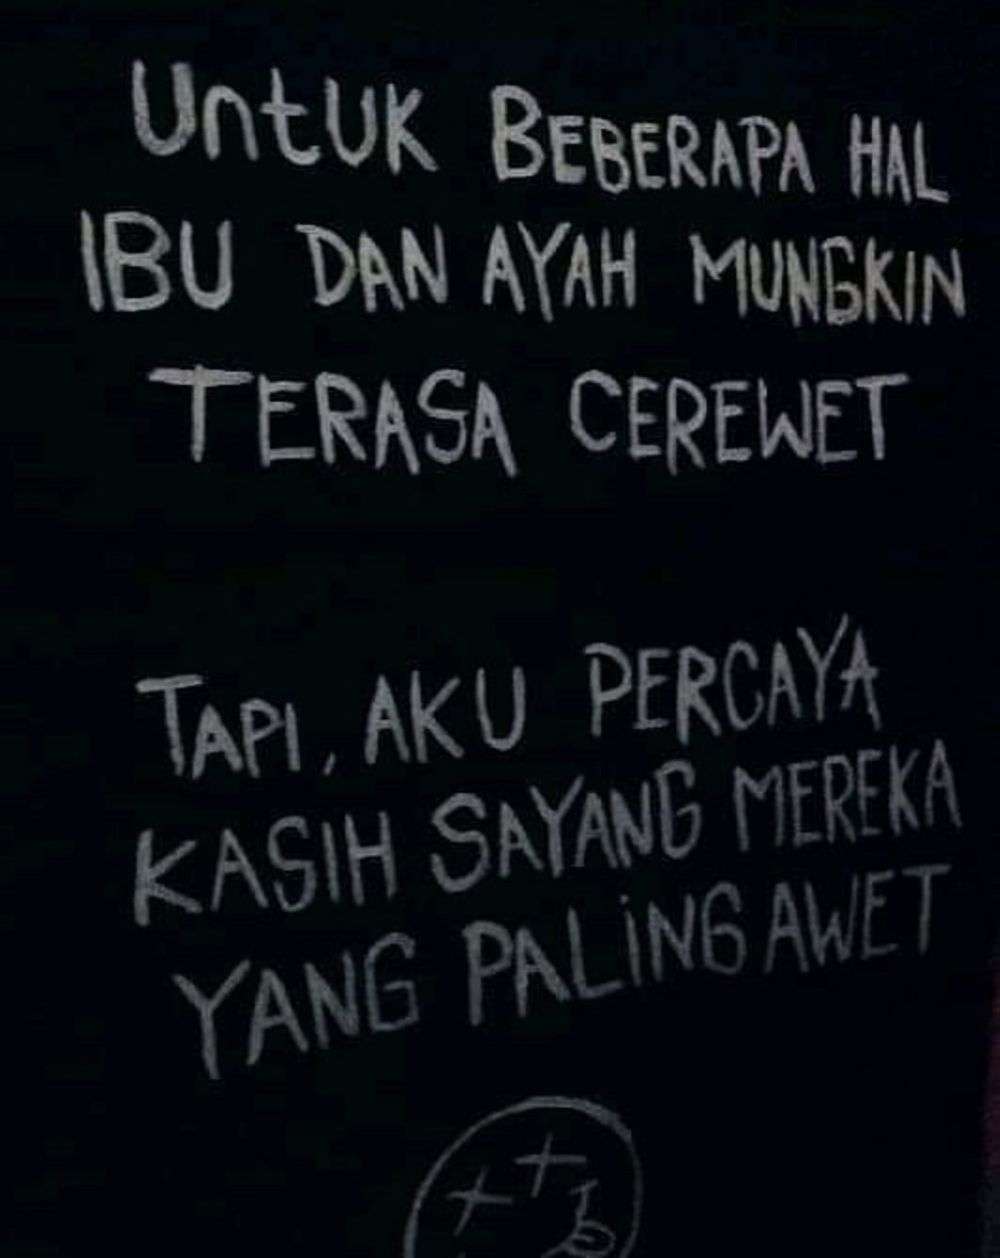 UntUK BEBERAPA HAL
IBU DAN AYAH MUNGKIN
TERASA CEREWET
TAPI, AKU PERCAYA
KASIH SAYANG MEREKA
YANG PALiNG AWET